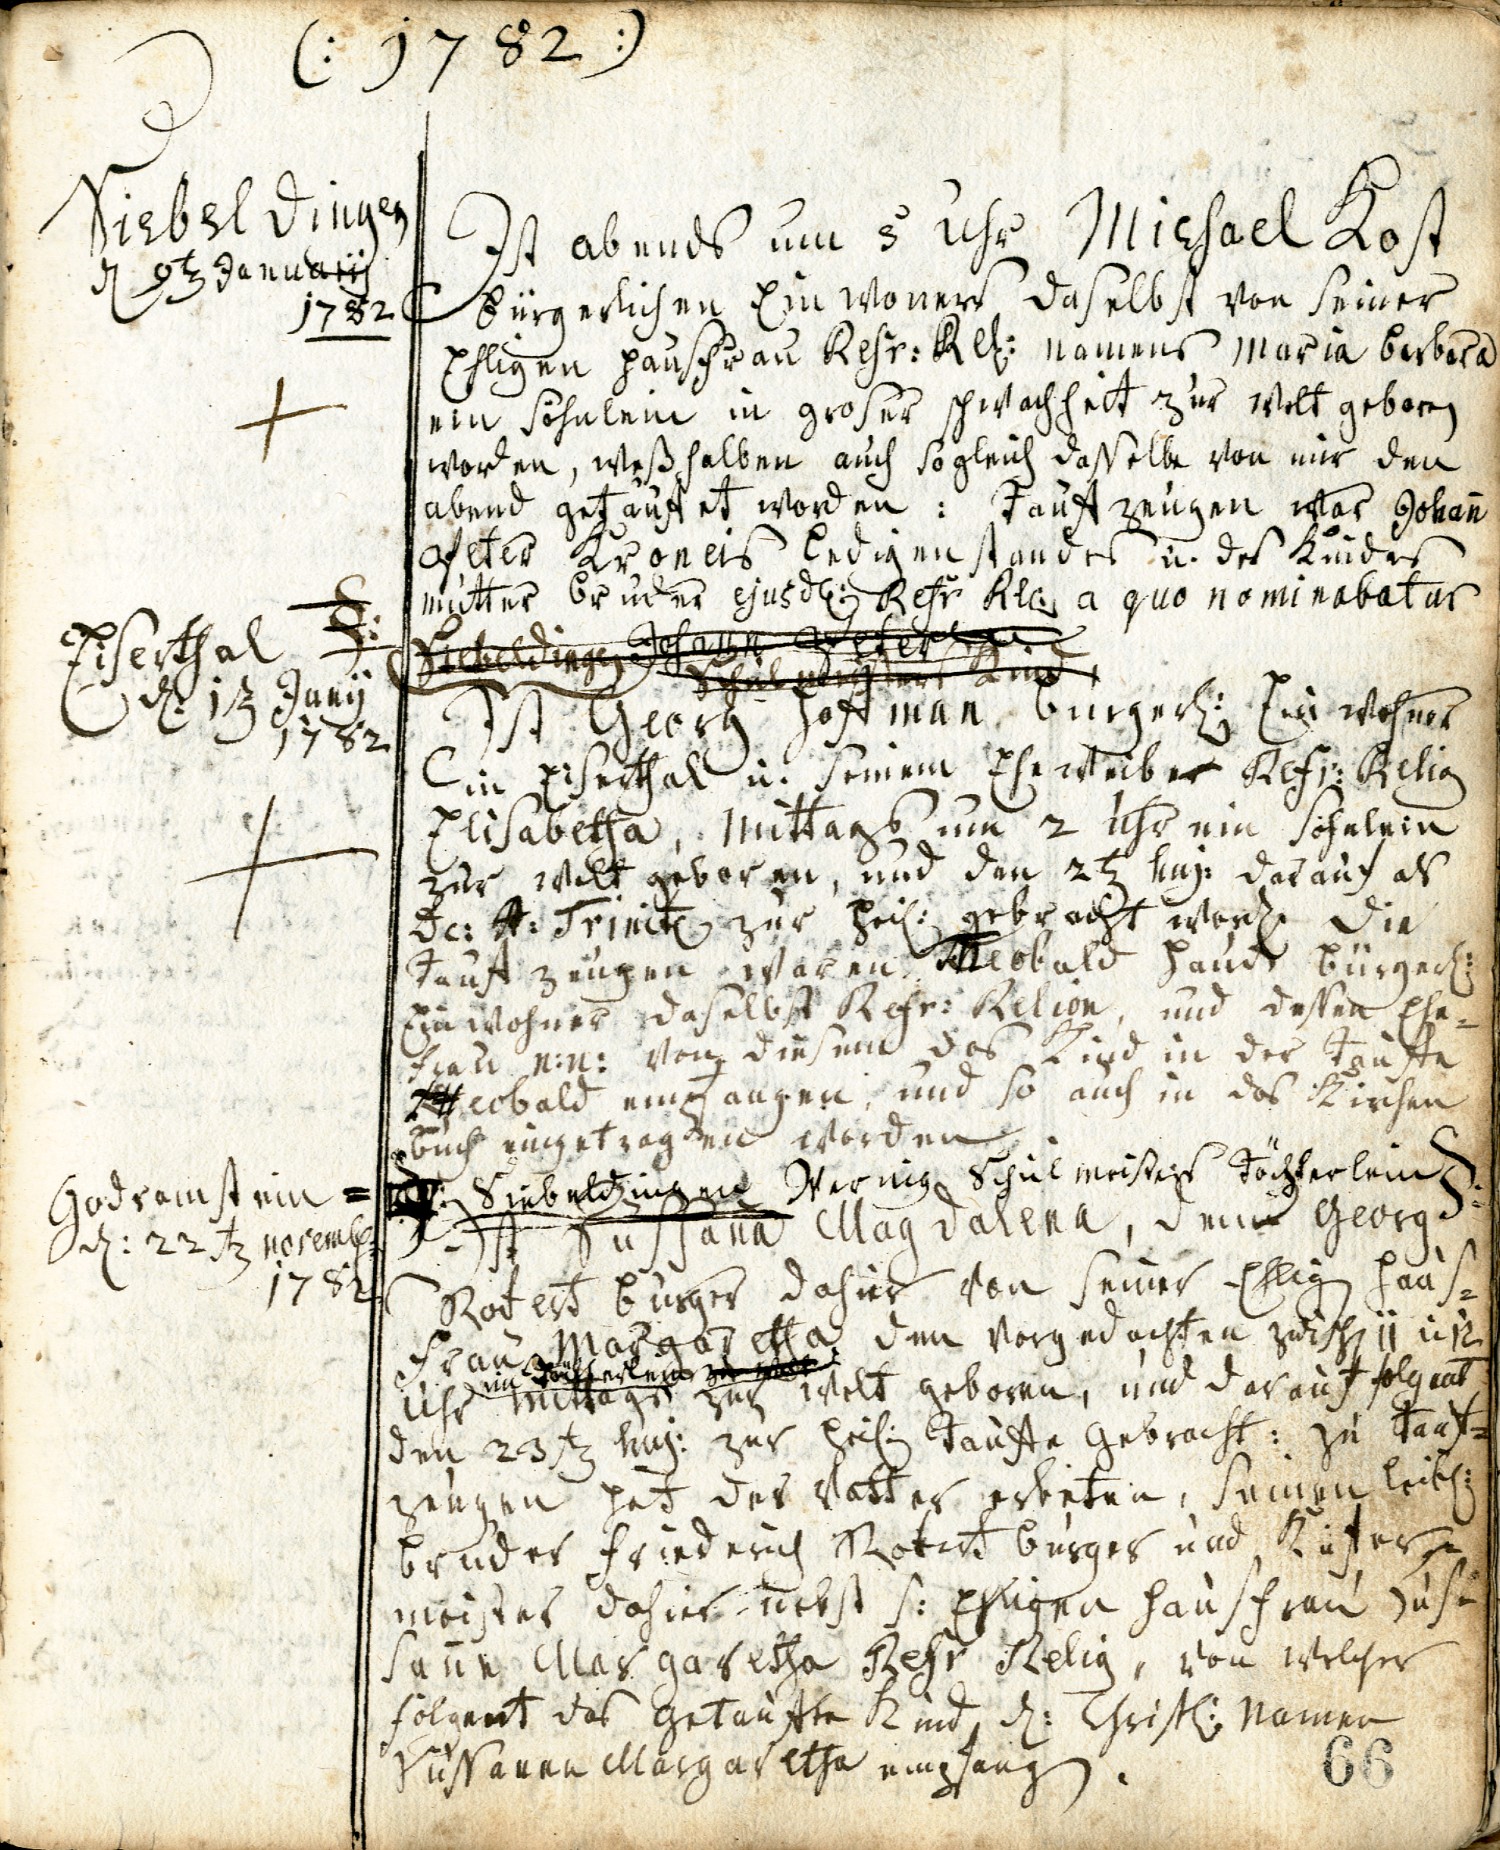 (: 1782 :)
Siebeldingen
d 9t Januarij
1782
Ist abends um 5 Uhr Michael Kost
bürgerlichen Einwoners daselbst von seiner
Ehligen Hausfrau Refr: Rel: namens Maria Barbara
ein söhnlein in groser schwachheit zur welt geboren
worden, weßhalben auch sogleich dasselbe von mir den
abend getauffet worden: Tauffzeugen war Johañ
Peter Kroneis ledigenstandes u. des Kindes
mutter bruder ejusd: Refr Rel: a quo nominabatur
Siebeldingen Johann Peter
Schulmeisters Kind
Eiserthal
d. 1t Junij
1782
Ist Georg Hoffman bürgerl: Einwohner
in Eiserthal u. seinem Eheweiber Refr: Relig
Elisabetha, Mittags um 2 Uhr ein söhnlein
zur welt geboren, und den 2t huj: darauf als
Dc: Trinit zur heil: gebracht word. Die
Tauffzeugen waren Theobald Haude bürgerl:
Einwohner daselbst Refr: Relion, und dessen Ehe=
frau n:n: von diesem das Kind in der Tauffe
Theobald empfangen, und so auch in das Kirchen
buch eingetragen worden
Siebeldingen Wernig Schulmeisters Töchterlein
Godramstein =
d: 22t novemb:
1782
Ist Sussana Magdalena, dem Georg
Rotert bürger dahier von seiner Ehlig Haus=
frau Margaretha den vorgedachten zwisch 11 u 12
ein Töchterlein zur welt
Uhr mittags zur welt geboren, und darauf folgent
den 23t huj: zur heil: Tauffe gebracht: zu Tauf=
zeugen hat der Vatter erbeten, seinen leibl:
bruder Friederich Rotert bürger und Küfer=
meister dahier nebst s: Ehligen Hausfrau Sus=
sann Margaretha Refr Relig, von welcher
folgent das getauffte Kind, d: Christl: Namen
Sussanna Margaretha empfang.
66